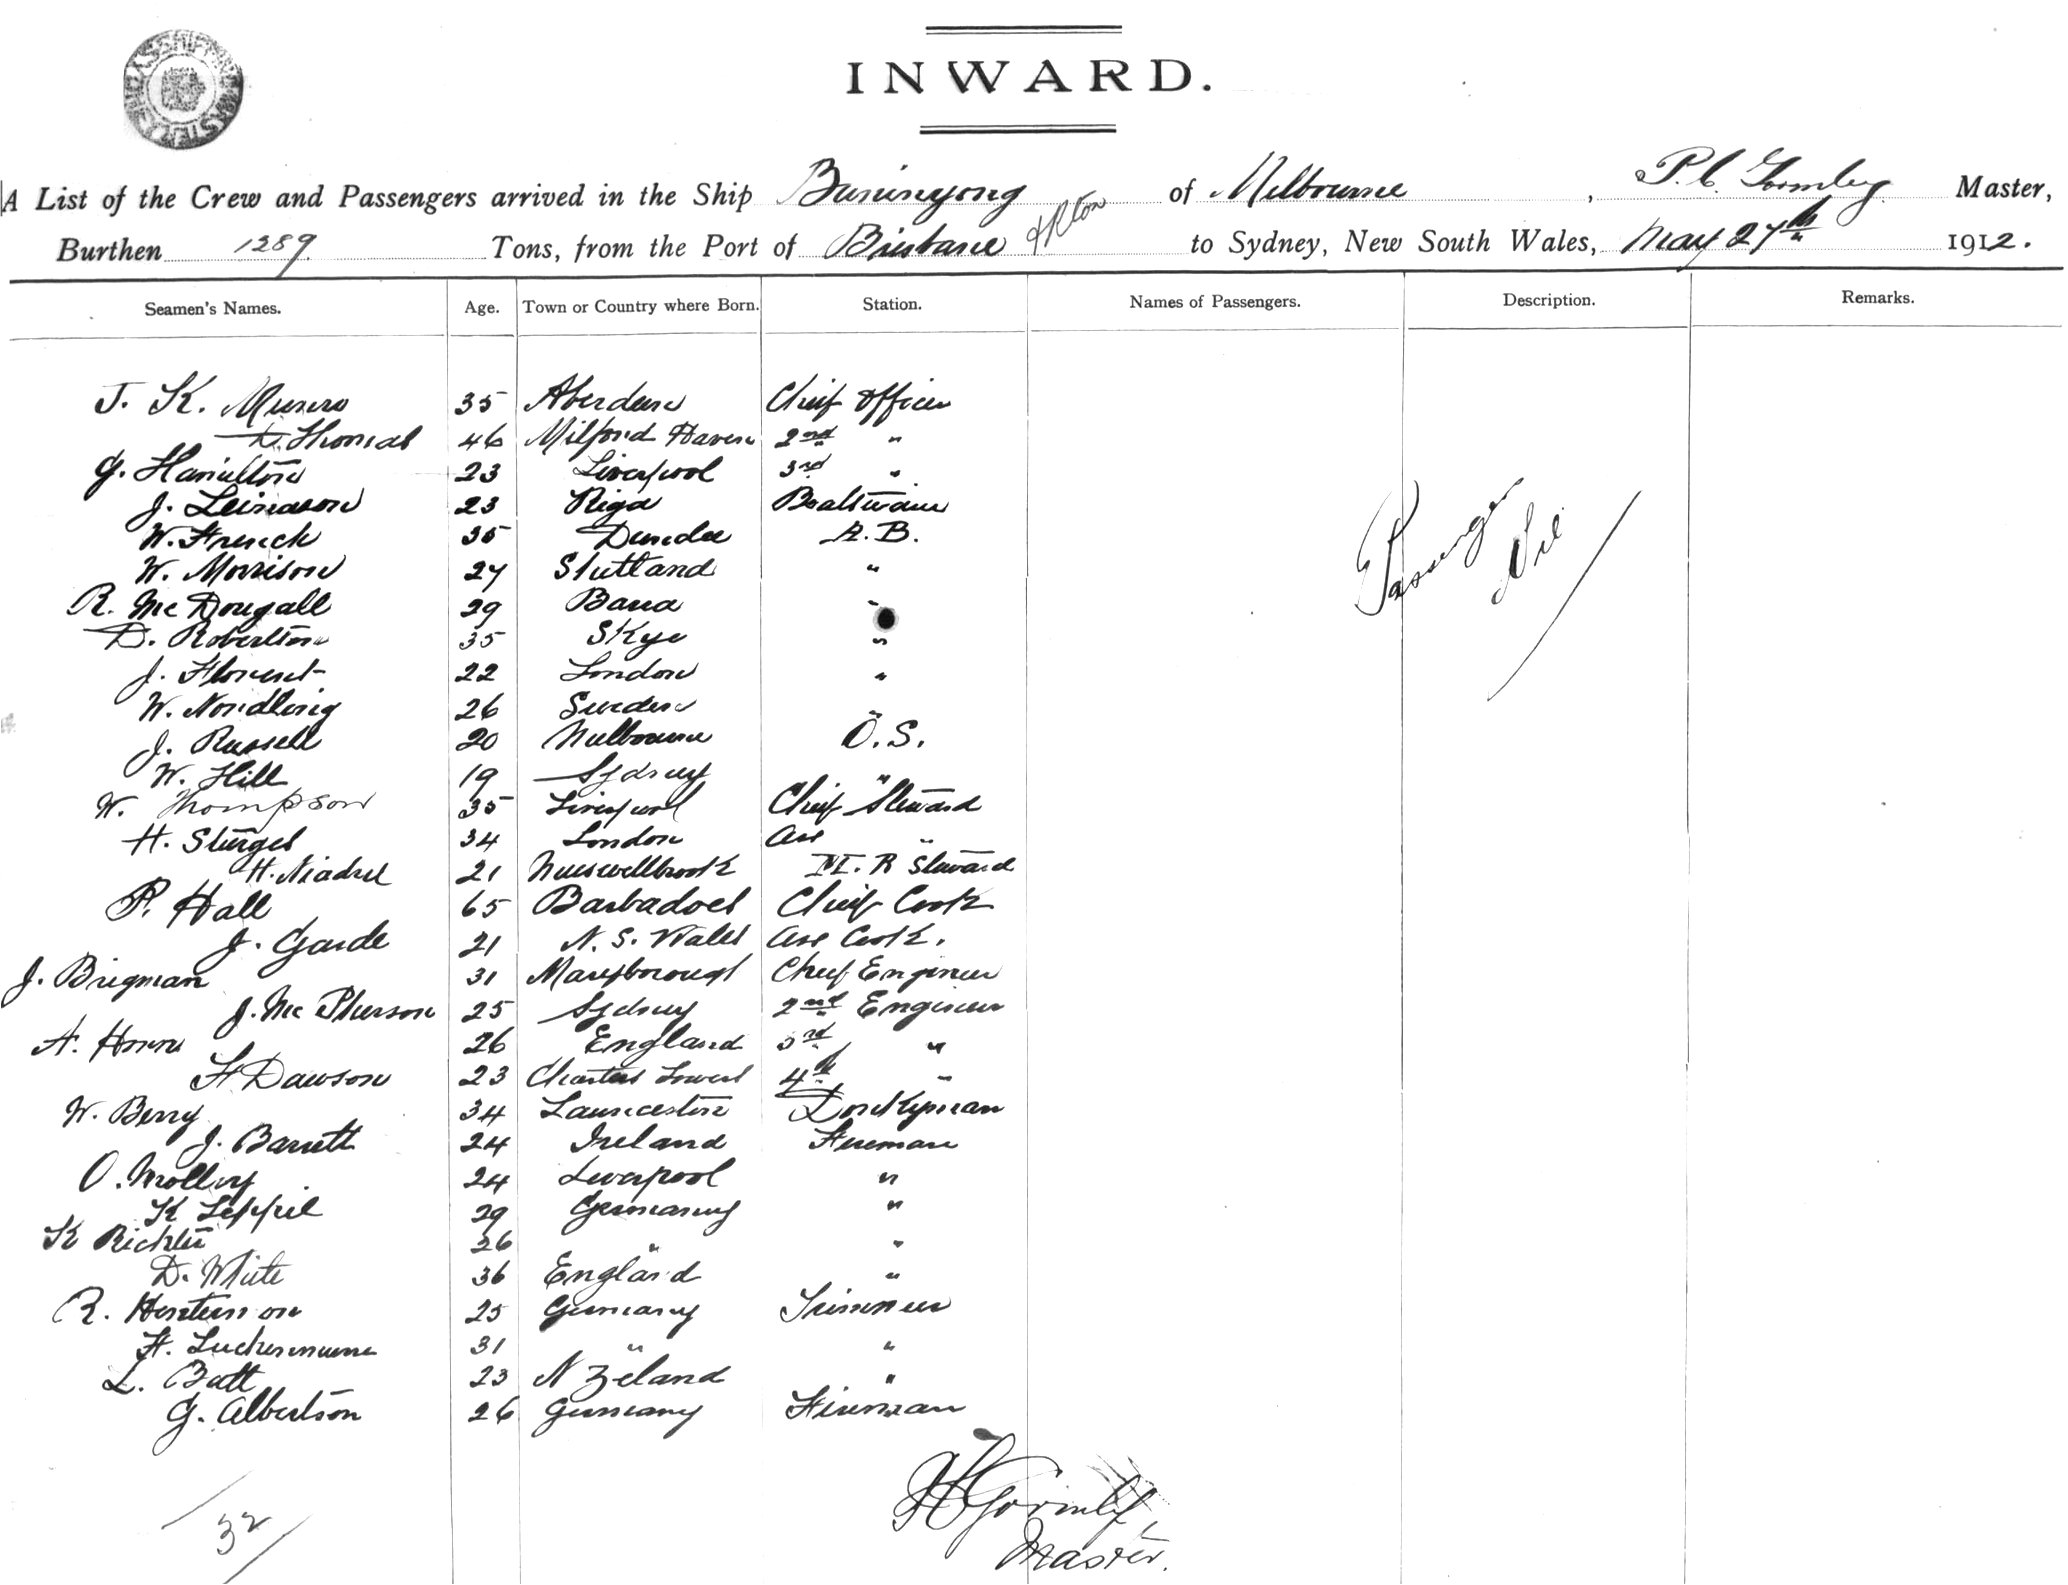 INWARD.
A List of the Crew and Passengers arrived in the Ship Buninyong of Melbourne, P. C. Gormley Master,
Burthen 1289 Tons, from the Port of Brisbane & Rton to Sydney, New South Wales, May 27th 1912.
Seamen's Names. Age. Town or Country where Born. Station. Names of Passengers. Description. Remarks.
J. K. Munro 35 Aberdeen Chief Officer
D. Thomas 46 Milford Haven 2nd "
G. Hamilton 23 Liverpool 3rd "
J. Leinason 23 Riga Boatswain
W. French 35 Dundee A. B.
W. Morrison 27 Shetland "
R. McDougall 29 Bara "
D. Robertson 35 Skye "
J. Florent 22 London "
W. Nordling 26 Sweden "
J. Russell 20 Melbourne O. S.
W. Hill 19 Sydney "
W. Thompson 35 Liverpool Chief Steward
H. Sturges 34 London Ass "
H. 21 Muswellbrook M. R Steward
P. Hall 65 Barbadoes Chief Cook
J. Garde 21 N. S. Wales Ass Cook.
J. Brigman 31 Maryborough Chief Engineer
J. McPherson 25 Sydney 2nd Engineer
A. Horn 26 England 3rd "
F Dawson 23 Charters Towers 4th "
W. Berry 34 Launceston Donkeyman
J. Barrett 24 Ireland Fireman
O. Molloy 24 Liverpool "
K Leppil 29 Germany "
K Richter 26 " "
D. White 36 England "
R. 25 Germany Trimmer
F. 31 " "
L. Batt 23 N Zeland "
G. Albertson 26 Germany Fireman
Passengers
Nil
32
P C Gormley
Master.